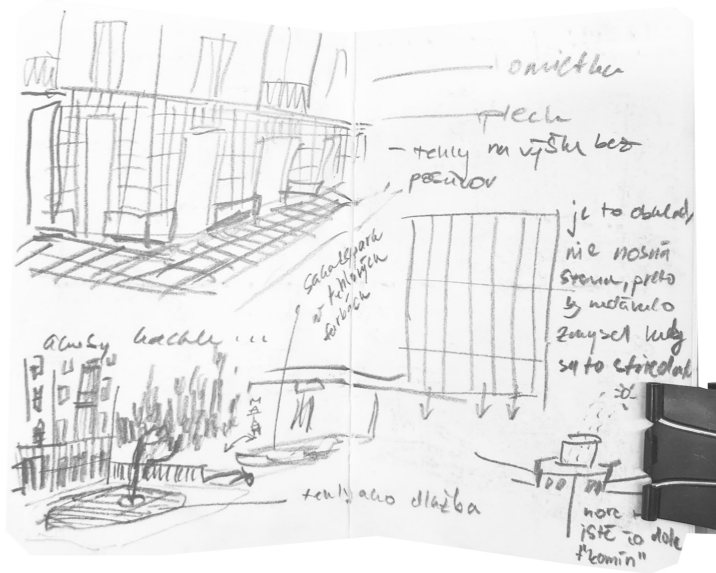 omietka
plech
- tehly na výšku bez
posunov
je to obklad,
nie nosná
stena, preto
by nedávalo
zmysel keby
sa to striedalo
v tehlových
farbách
akoby kachle...
tehly ako dlažba
hore
isté čo dole
"komín"